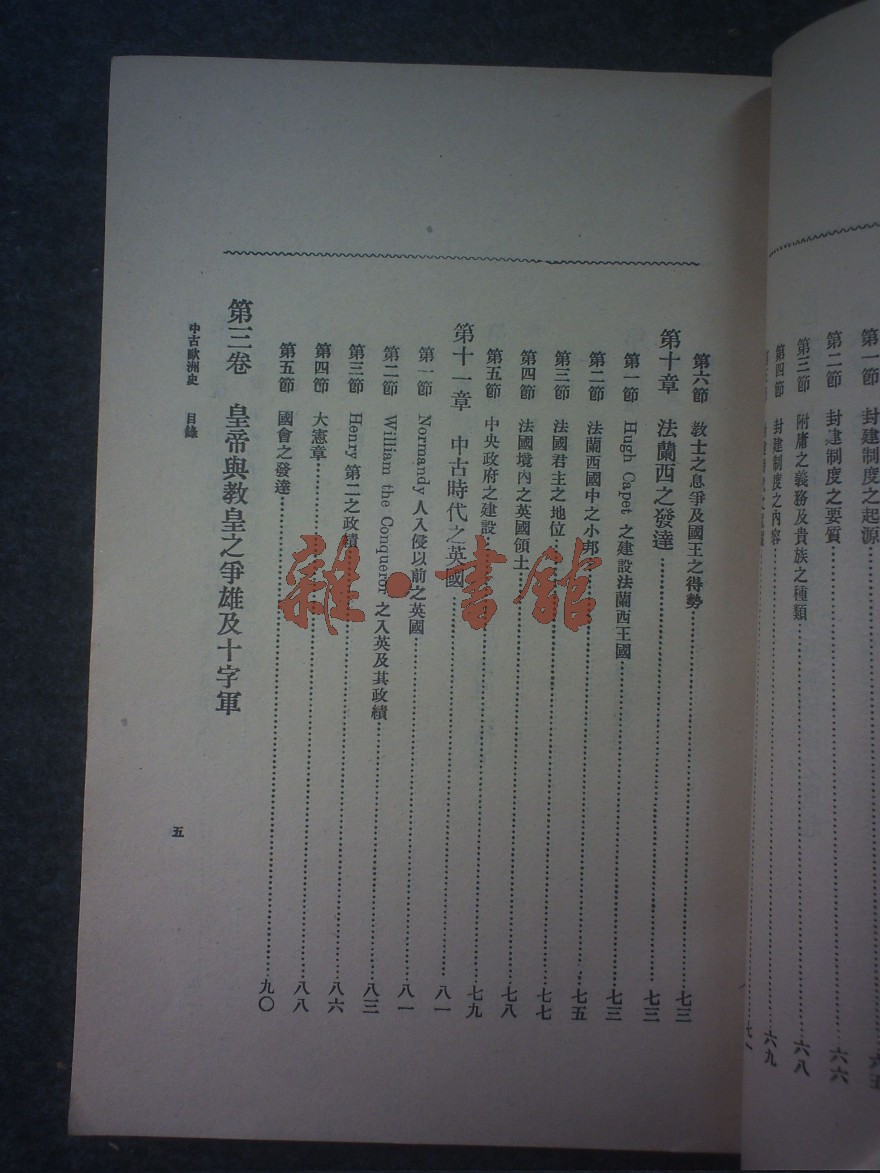 第一節 封建制度之起源
第二節 封建制度之要質 六六
第三節 附庸之義務及貴族之種類 六八
第四節 封建制度之內容 六九
第六節 教士之息爭及國王之得勢 七三
第十章 法蘭西之發達 七三
第一節 Hugh Capet 之建設法蘭西王國 七三
第二節 法蘭西國中之小邦 七五
第三節 法國君主之地位 七七
第四節 法國境內之英國領土 七八
第五節 中央政府之建設 七九
第十一章 中古時代之英國 八一
第一節 Normandy 人入侵以前之英國 八一
第二節 William the Conqueror 之入英及其政績 八三
第三節 Henry 第二之政績 八六
第四節 大憲章 八八
第五節 國會之發達 九〇
第三卷 皇帝與教皇之爭雄及十字軍
中古歐洲史 目錄
五
雜·書館